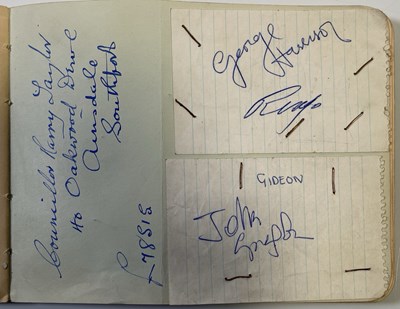 Councillor Harry Taylor
40 Oakwood Drive
Ainsdale
Southport
78515
George Harrison
Ringo
GIDEON
John